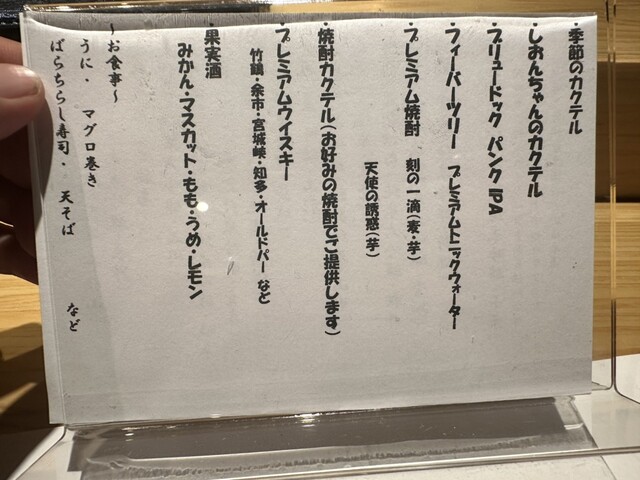 ・季節のカクテル
・しおんちゃんのカクテル
・ブリュードック パンク IPA
・フィーバーツリー プレミアムトニックウォーター
・プレミアム焼酎 刻の一滴(麦・芋)
天使の誘惑(芋)
・焼酎カクテル(お好みの焼酎でご提供します)
・プレミアムウイスキー
竹鶴・余市・宮城峡・知多・オールドパー など
・果実酒
みかん・マスカット・もも・うめ・レモン
～お食事～
うに・マグロ巻き
ばらちらし寿司・天そば など